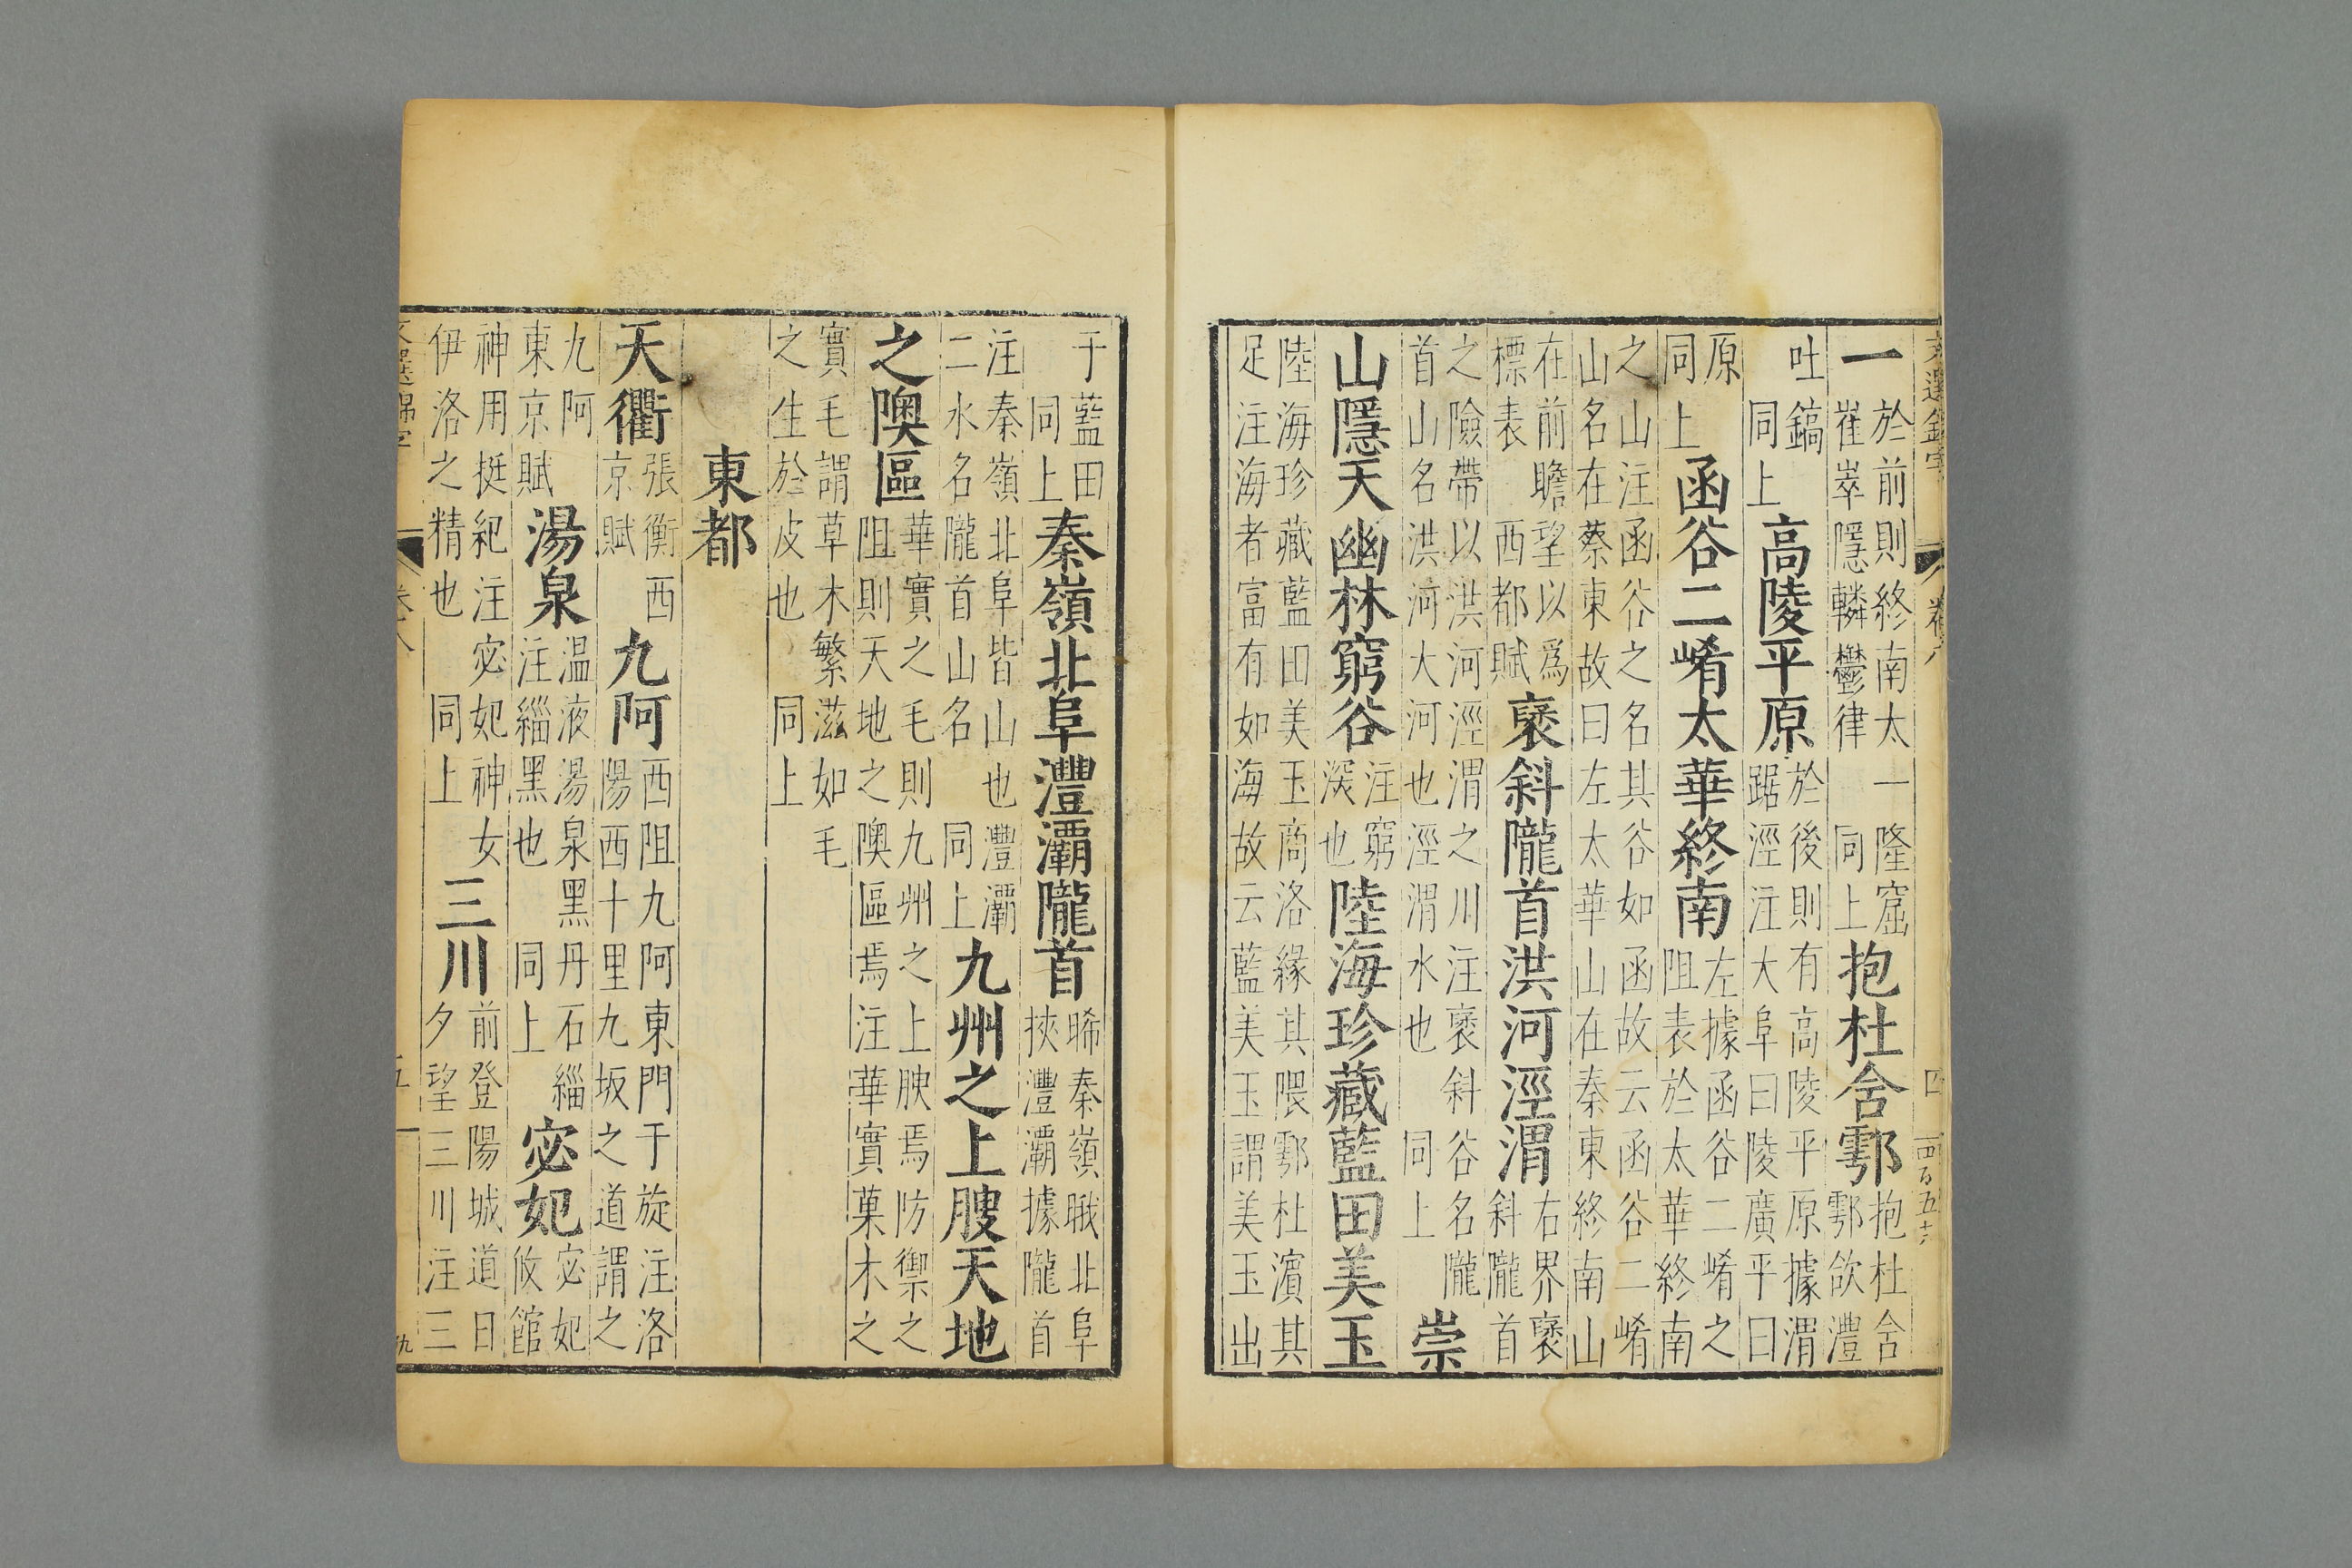 文選錦字 卷八 四
一於前則終南太一隆窟崔崒隱轔鬱律同上抱杜含鄠抱杜含鄠欱灃
吐鎬同上高陵平原於後則有高陵平原據渭踞涇注大阜曰陵廣平曰
原同上函谷二崤太華終南左據函谷二崤之阻表於太華終南
之山注函谷之名其谷如函故云函谷二崤山名在蔡東故曰左太華山在秦東終南山
在前瞻望以爲標表西都賦褒斜隴首洪河涇渭右界褒斜隴首
之險帶以洪河涇渭之川注褒斜谷名隴首山名洪河大河也涇渭水也同上崇
山隱天幽林窮谷注窮深也陸海珍藏藍田美玉
陸海珍藏藍田美玉商洛緣其隈鄠杜濱其足注海者富有如海故云藍美玉謂美玉出
于藍田同上秦嶺北阜灃灞隴首睎秦嶺睋北阜挾灃灞據隴首
注秦嶺北阜皆山也灃灞二水名隴首山名同上九州之上腴天地
之隩區華實之毛則九州之上腴焉防禦之阻則天地之隩區焉注華實菓木之
實毛謂草木繁滋如毛之生於皮也同上
東都
天衢張衡西京賦九阿西阻九阿東門于旋注洛陽西十里九坂之道謂之
九阿東京賦湯泉温液湯泉黑丹石緇注緇黑也同上宓妃宓妃攸館
神用挺紀注宓妃神女伊洛之精也同上三川前登陽城道日夕望三川注三